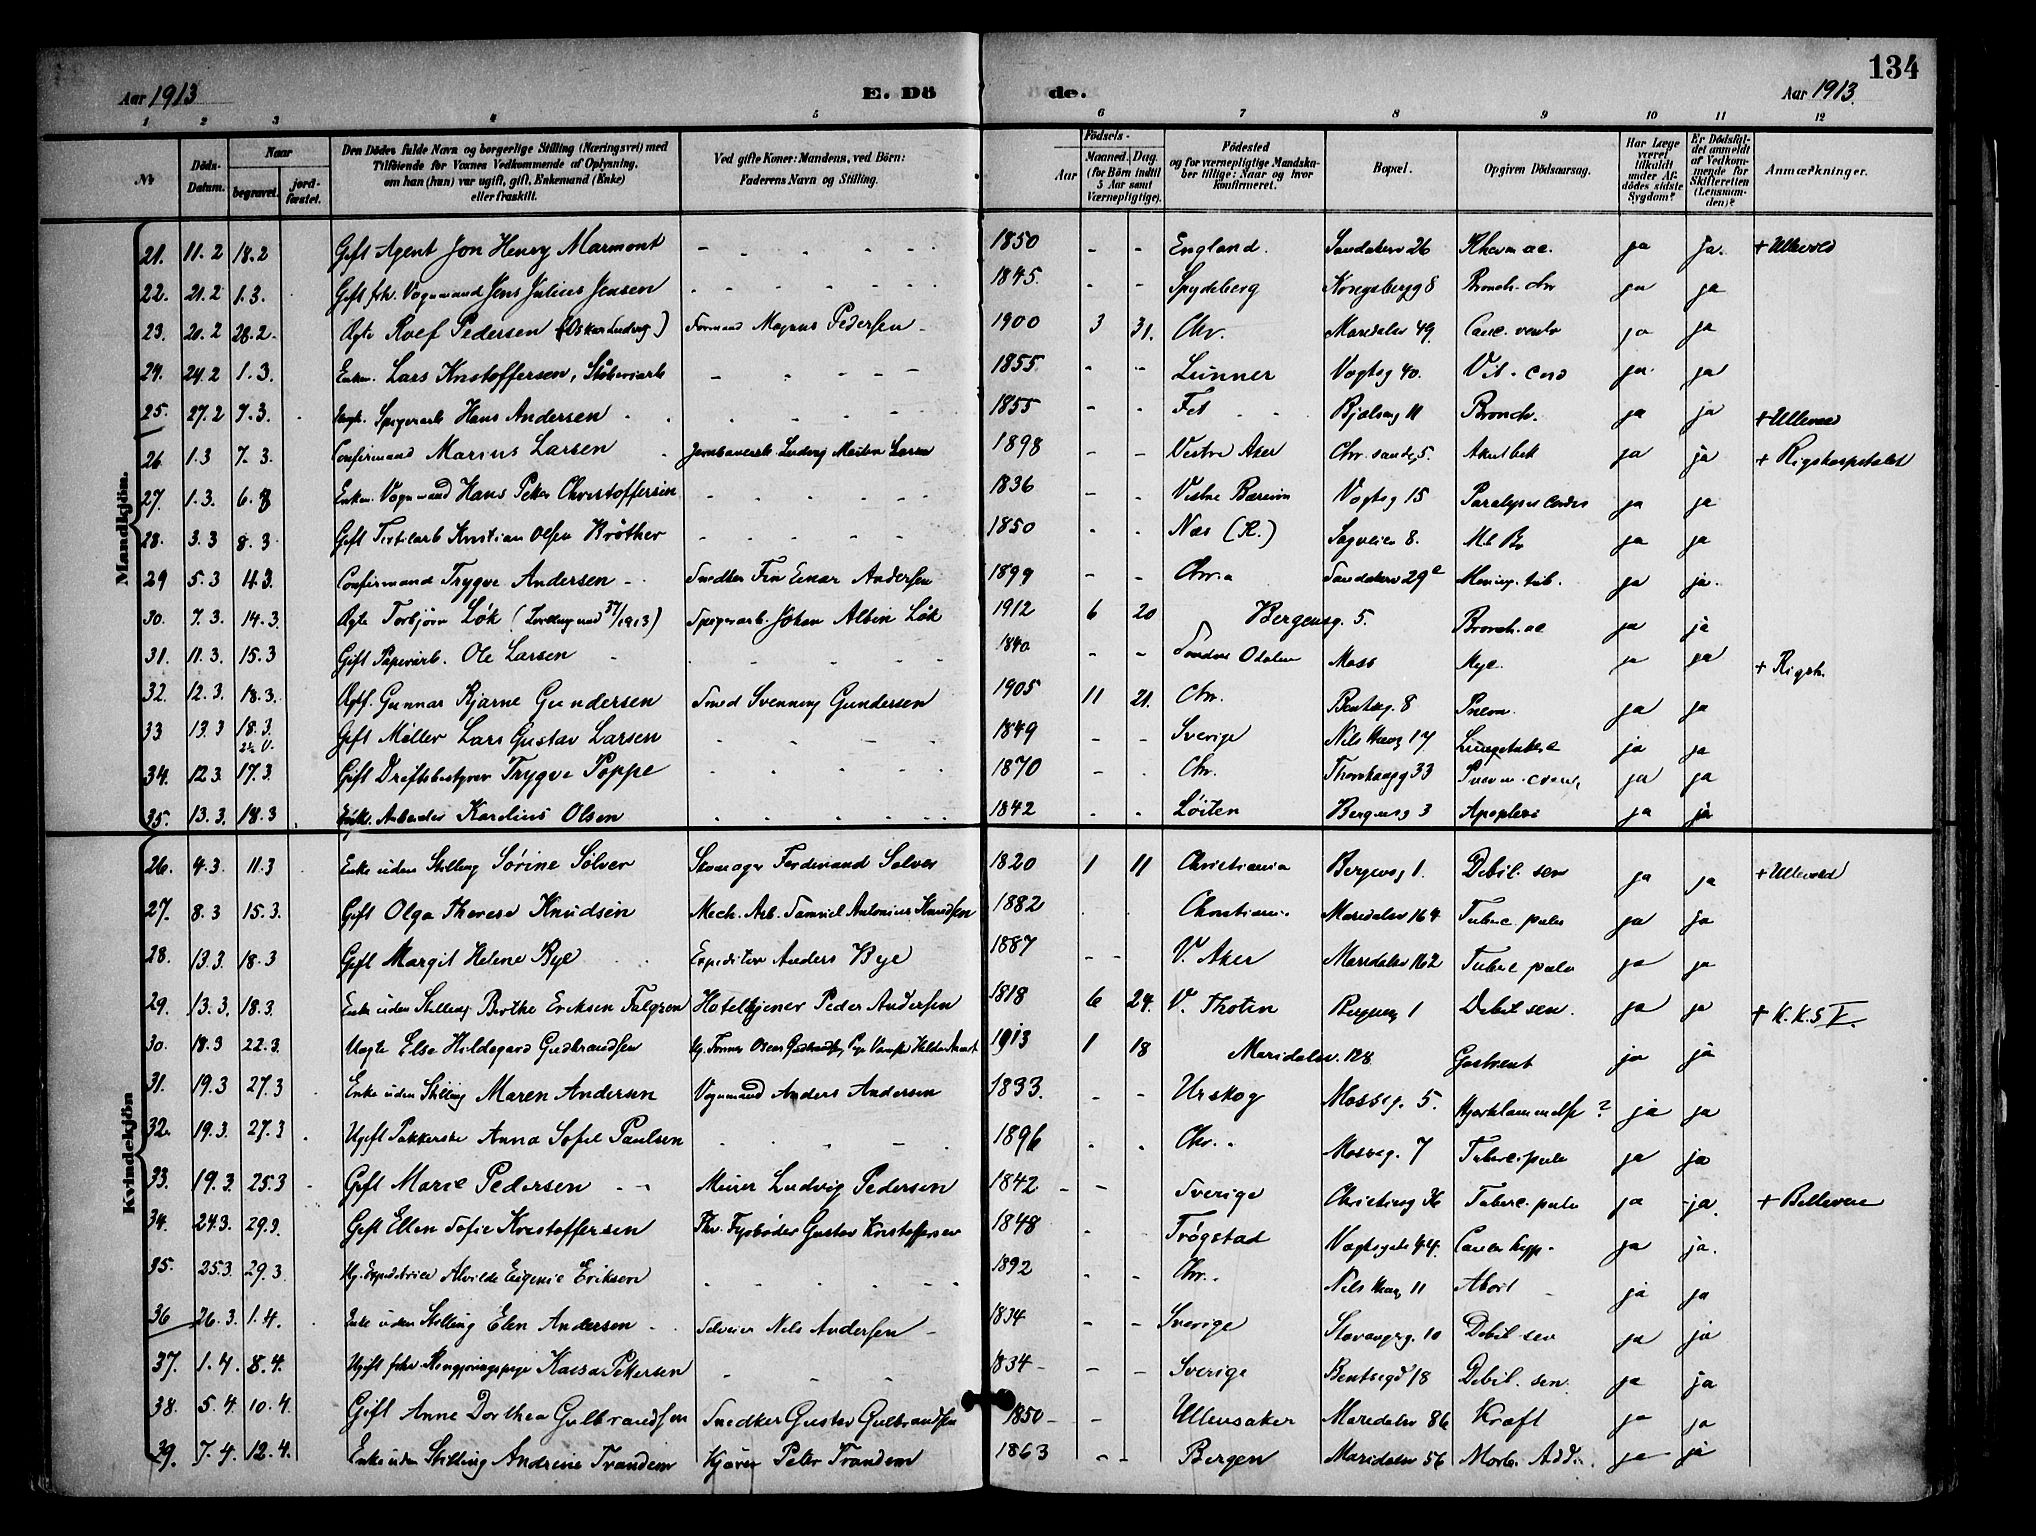 134
Aar 1913
E. Dö
de.
Aar 1913.
1 2 3 4 5 6 7 8 9 10 11 12
№
Döds-Datum.
Naar
begravet.
jord-fæstet.
Den Dödes fulde Navn og borgerlige Stilling (Næringsvei) med
Tilföiende for Voxnes Vedkommende af Oplysning,
om han (hun) var ugift, gift, Enkemand (Enke)
eller fraskilt.
Ved gifte Koner: Mandens, ved Börn:
Faderens Navn og Stilling.
Födsels-
Aar
Maaned. Dag.
(for Börn indtil
5 Aar samt
Værnepligtige).
Födested
og for værnepligtige Mandska-
ber tillige: Naar og hvor
konfirmeret.
Bopæl.
Opgiven Dödsaarsag.
Har Læge
været
tilkaldt
under Af-
dödes sidste
Sygdom?
Er Dödsfal-
det anmeldt
af Vedkom-
mende for
Skifteretten
(Lensman-
den)?
Anmærkninger.
Mandkjön.
21. 11.2 18.2 Gift Agent Jon Henry Marmont - 1850 - - England. Sandakerv 26 Rheum ac. ja ja. + Ullevold
22. 21.2 1.3. Gift fhv. Vognmand Jens Julius Jensen - 1845. - - Spydeberg Kongsbergg 8 Bronch. chr ja ja
23. 20.2 28.2. Ægte Rolf Pedersen (Oskar Ludvig) Formand Magnus Pedersen 1900 3 31. Chr. Maridalsv 49. ja ja
24. 24.2 1.3. Enkm. Lars Kristoffersen, Støberiarb - 1855. - - Lunner Vogtsg 40. Vit. cord ja ja
25. 27.2 7.3. Spigerarb Hans Andersen - 1855 - - Fet Bjølseng 11 Bronch. ja ja + Ullevold
26. 1.3 7.3. Confirmand Marius Larsen Jernbanearb. Ludvig Larsen 1898 - - Vestre Aker Chr. sandg 5. ja ja + Rigshospitalet
27. 1.3. 6.3 Enkm. Vognmand Hans Peter Christoffersen - 1836 - - Vestre Bærum Vogtsg 15 Paralysis cordis ja ja
28. 3.3 8.3 Gift Kristian Olsen Bröther - 1850 - - Næs (R.) Sagveien 8. M. Br ja ja
29 5.3 11.3. Confirmand Trygve Andersen Snedker Einar Andersen 1899 - - Chr.a Sandakerv 29 c Mening. tub. ja ja.
30. 7.3. 14.3. Ægte Torbjörn Løk Spigerarb. Johan Albin Løk 1912 6 20 Bergensg. 5. Bronch. ac ja ja
31. 11.3 15.3 Gift Papirarb. Ole Larsen - 1840 - - Søndre Odalen Moss Mye. ja ja + Rigsh.
32. 12.3. 18.3. Ægte. Gunnar Bjarne Gundersen Smed Svenning Gundersen 1905 11 21. Chr. Bentseg. 8 Pneum. ja ja
33 13.3 18.3. Gift Møller Lars Gustav Larsen - 1849 - - Sverige Nils Huusg 17 ja ja
34. 12.3. 17.3. Gift Driftsbestyrer Trygve Poppe - 1870 - - Chr. Thorshaugg 33 Pneum. croup. ja ja
35. 13.3. 18.3 Arbeider Karelius Olsen - 1842 - - Løiten Bergensg 3 Apoplexi ja ja
Kvindekjön
26. 4.3. 11.3 Enke uden Stilling Sørine Sølver Skomager Ferdinand Sølver 1820 1 11 Christiania Bergensg 1. Debil. sen ja ja + Ullevold
27. 8.3 15.3. Gift Olga Therese Knudsen Mech. Arb. Samuel Antonius Knudsen 1882 Christiania Maridalsv 164 Tuberc. pulm ja ja
28. 13.3. 18.3 Gift Margit Helene Bye Expeditør Anders Bye 1887 - - V. Aker Maridalsv 162 Tuberc pulm ja ja
29. 13.3. 18.3. Enke uden Stilling Berthe Eriksen Hotelkjener Peder Andersen 1818 6 24. V. Thoten Bergensg 1 Debil sen. ja ja + K.K.S V.
30. 18.3 22.3. Uægte Else Hildegard Gudbrandsen 1913 1 18 Maridalsv. 128 Gastroent ja ja
31. 19.3 27.3 Enke uden Stilling Maren Andersen Vognmand Anders Andersen 1833. - - Urskog Mossg. 5. Hjertelammelse ? ja ja
32. 19.3. 27.3 Ugift Pakkerske Anna Sofie Paulsen - 1896 - - Chr. Mossg. 7 Tuberc. pulm ja ja
33. 19.3. 25.3 Gift Marie Pedersen Murer Ludvig Pedersen 1842 - - Sverige Tuberc. pulm ja ja. + Bellevue
34. 24.3. 29.3. Gift Ellen Sofie Kristoffersen Fhv. Fyrbøder Gustav Kristoffersen 1848 - Trøgstad Vogtsgate 44. ja ja.
35. 25.3. 29.3. Ug. Expeditrice Alvilde Eugenie Eriksen - 1892 - - Chr. Nils Huusg 11 Abort ja ja
36 26.3. 1.4. Enke uden Stilling Elen Andersen Selveier Nils Andersen 1834 - - Sverige Stavangrg. 10 Debil sen ja ja
37. 1.4. 8.4. Ugift fhv Rengjøringspige Kaisa Pettersen - 1834 - - Sverige Bentsegd 18 Debil. sen. ja ja
38. 5.4. 10.4. Gift Anne Dorthea Gulbrandsen Snedker Gustav Gulbrandsen 1850 - - Ullensaker Maridalsv 86 Kræft ja ja
39. 7.4. 12.4. Enke uden Stilling Andrine Trandem Kjører Peter Trandem 1863 - - Bergen Maridalsv 56 Morb. Add. ja ja